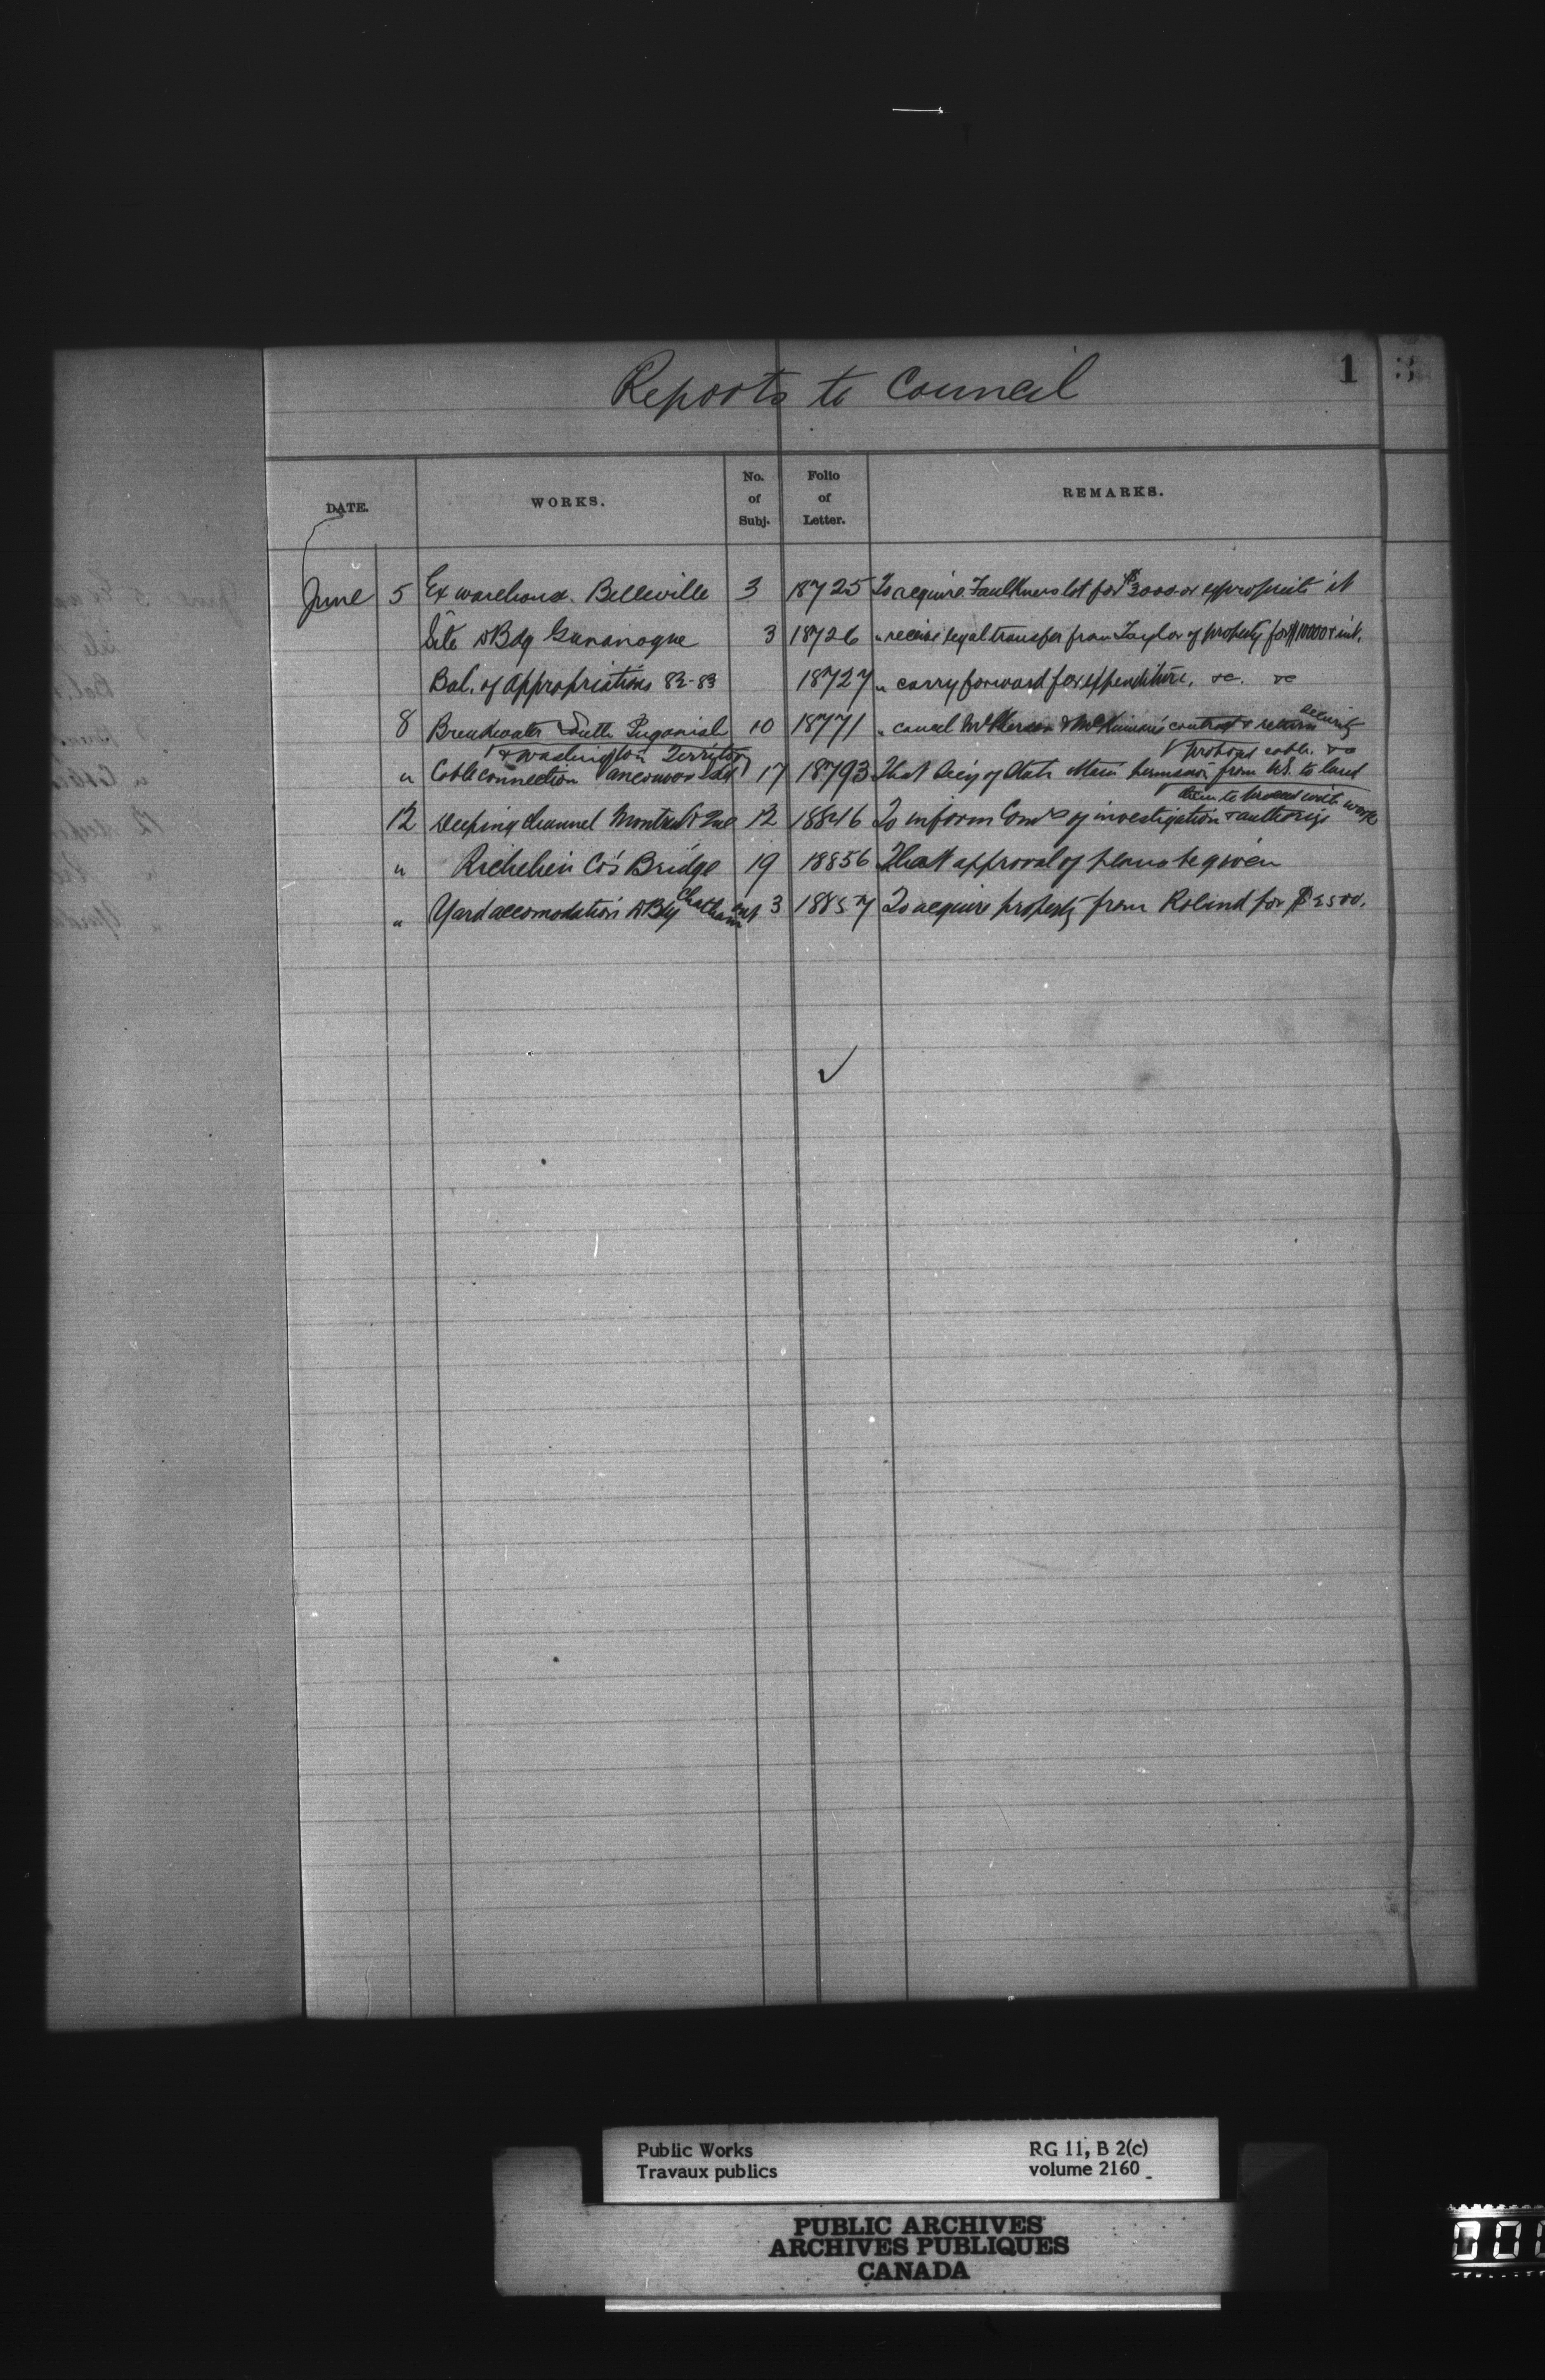 Reports to Council
1
3
DATE. WORKS. No. of Subj. Folio of Letter. REMARKS.
June 5 Ex warehouse. Belleville 3 18725 To acquire Faulkners lot for $3000 or expropriate it
Site D Bdg Gananoque 3 18726 " receive legal transfer from Taylor of property for $10000 & int.
Bal. of Appropriations 82-83 18727 " carry forward for expenditure, &c. &c
8 Breakwater South 10 18771 " cancel McPherson & McKinnon's contract & return security
& Washington Territory proposed cable. &c
" Cable connection Vancouver Isd 17 18793 That Secy of State obtain permission from U.S. to land
them to proceed with works
12 Deeping channel Montreal & Que 12 18846 To inform Comrs of investigation & authorize
" Richelieu Co's Bridge 19 18856 That approval of plans be given
" Yard accomodation D Bdg Chatham Ont 3 18857 To acquire property from Roland for $2500.
Public Works
Travaux publics
RG 11, B 2(c)
volume 2160
PUBLIC ARCHIVES
ARCHIVES PUBLIQUES
CANADA
000